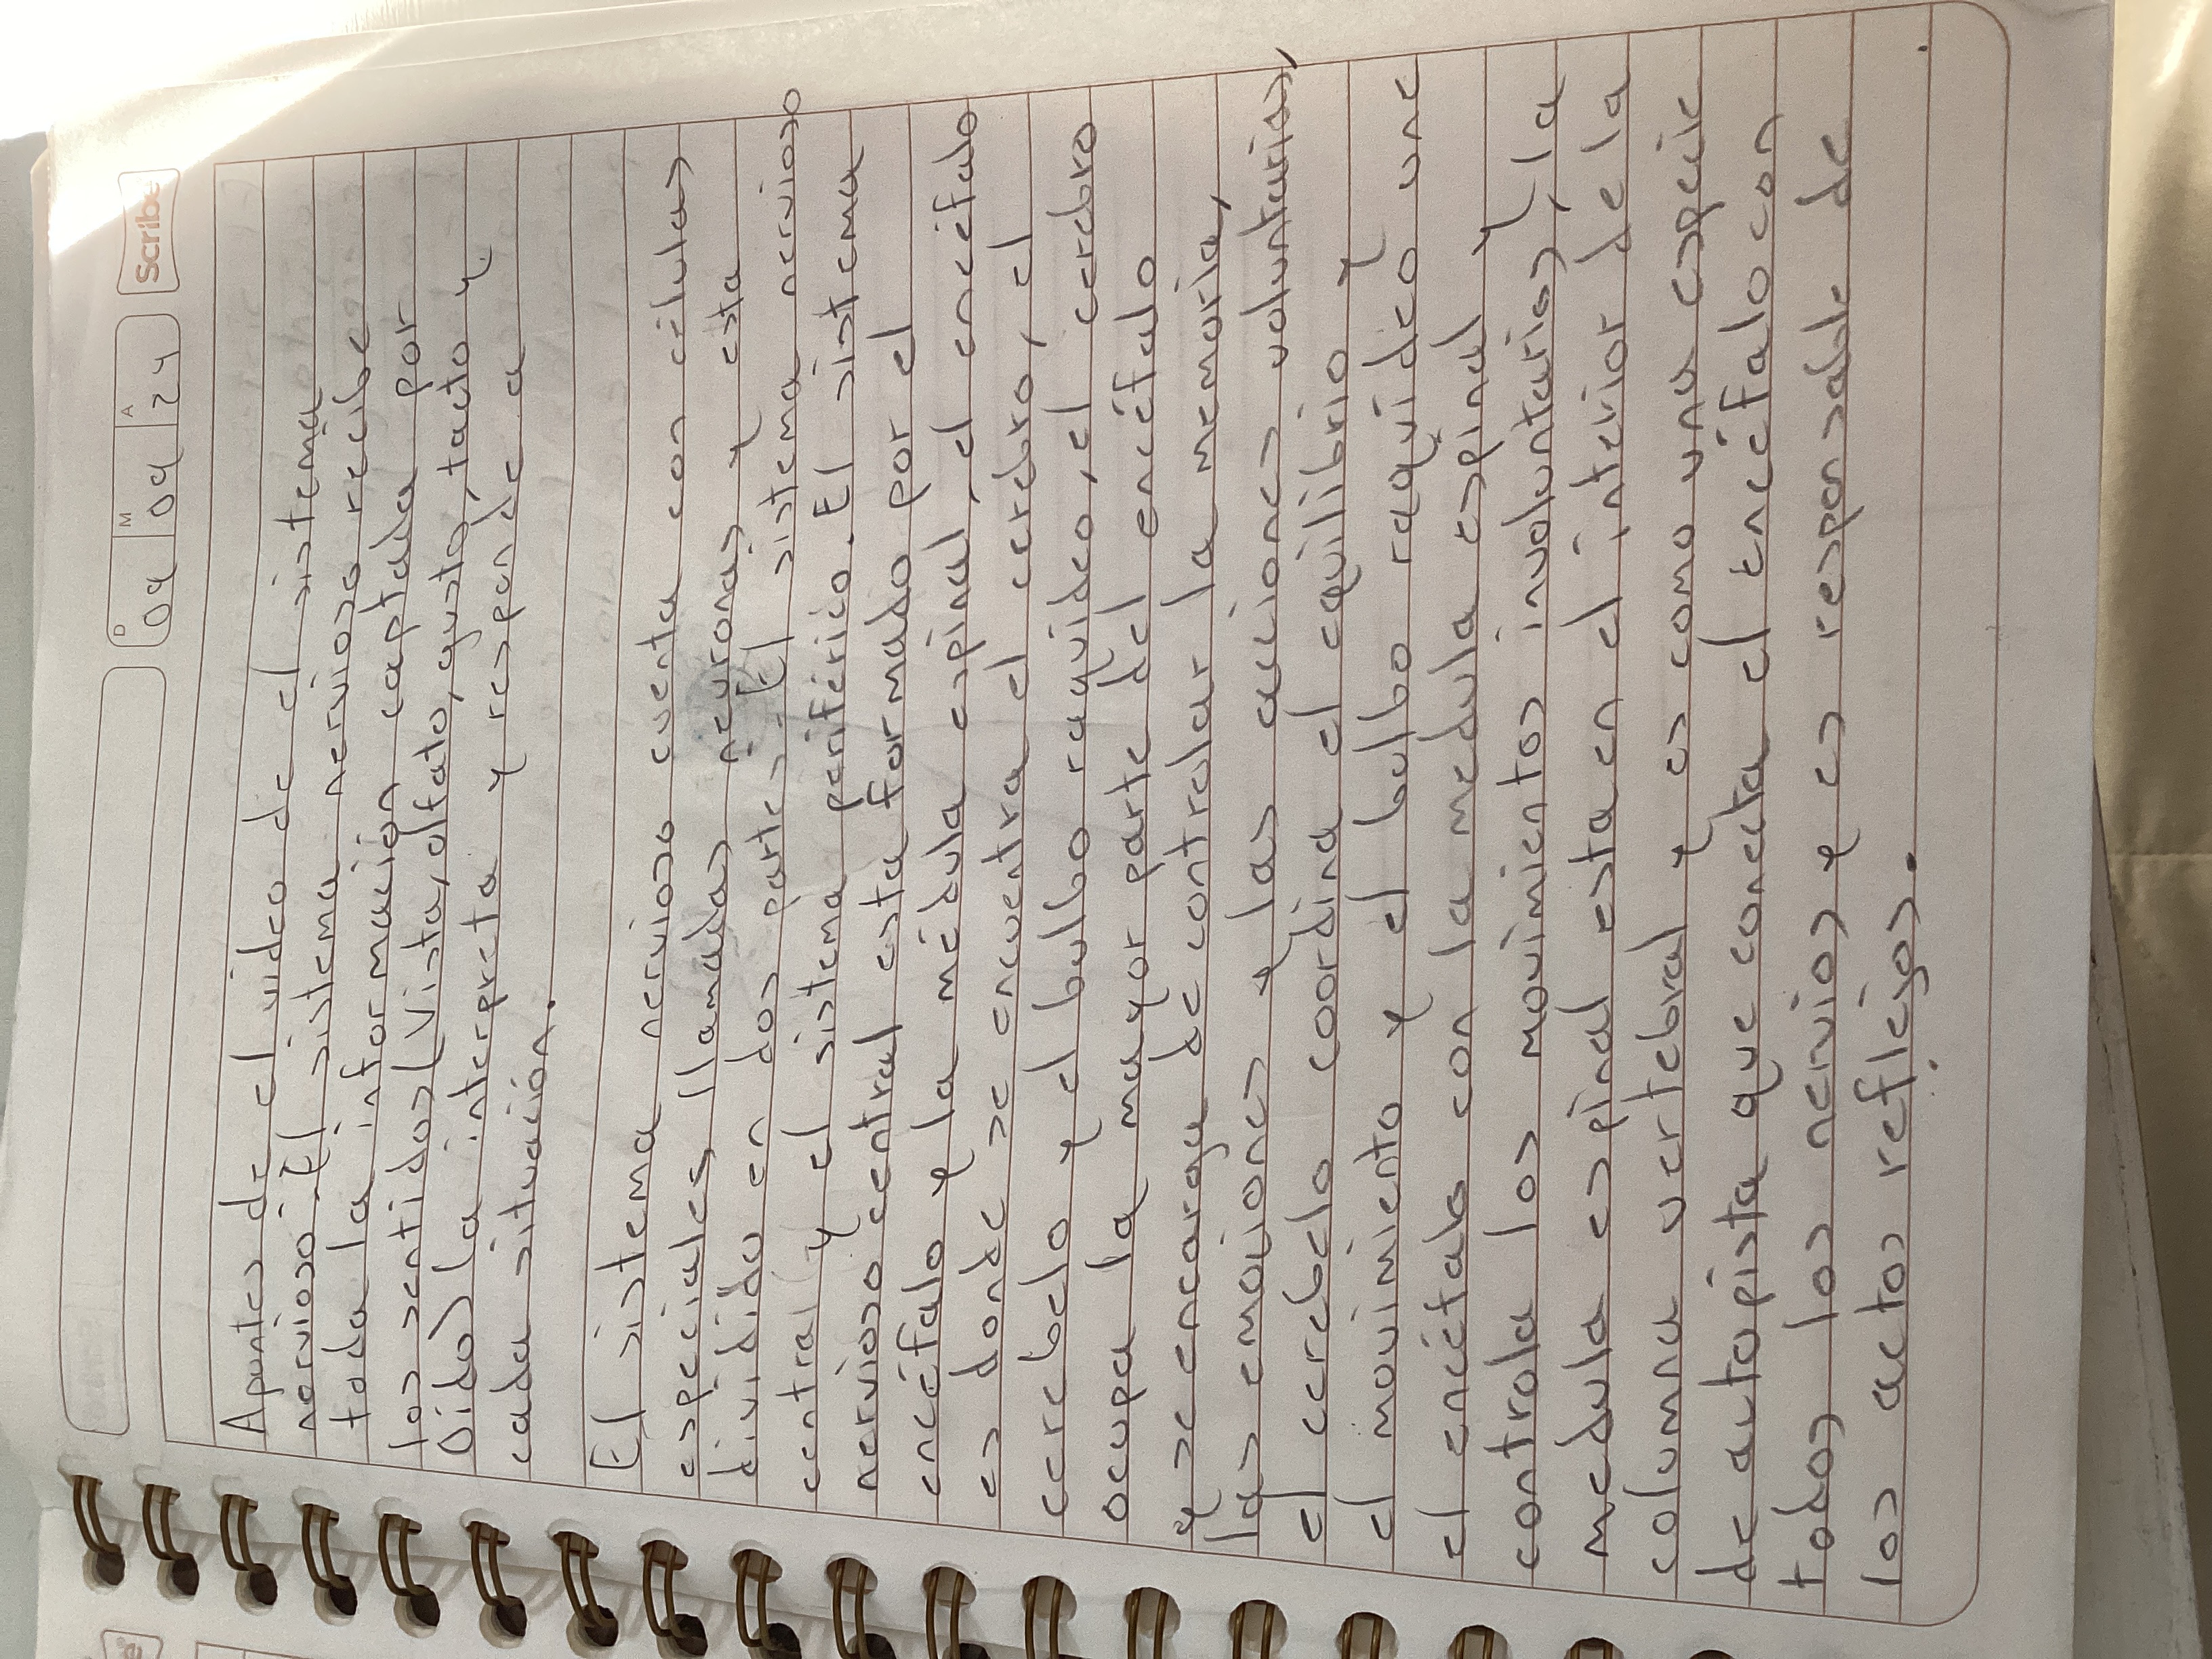 D M A
09 09 24
Scribe
Apuntes de el video de el sistema
nervioso. El sistema nervioso recibe
toda la información captada por
los sentidos (Vista, olfato, gusto, tacto y
Oido) la interpreta y responde a
cada situación.
El sistema nervioso cuenta con células
especiales llamadas neuronas y esta
dividido en dos partes: El sistema nervioso
central y el sistema periférico. El sistema
nervioso central esta formado por el
encéfalo y la médula espinal, el encéfalo
es donde se encuentra el cerebro, el
cerebelo y el bulbo raquideo, el cerebro
ocupa la mayor parte del encéfalo
y se encarga de controlar la memoria,
las emociones y las acciones voluntarias,
el cerebelo coordina el equilibrio y
el movimiento y el bulbo raquideo une
el encéfalo con la medula espinal y
controla los movimientos involuntarios, la
medula espinal esta en el interior de la
columna vertebral y es como una especie
de autopista que conecta el encéfalo con
todos los nervios y es responsable de
los actos reflejos.